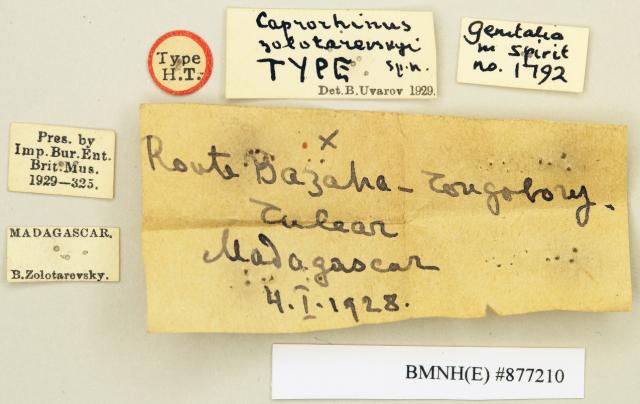 Type
H.T.
Caprorhinus
zolotarevskyi
TYPE sp.n.
Det.B.Uvarov 1929.
Genitalia
in spirit
no. 1792
Pres. by
Imp.Bur.Ent.
Brit.Mus.
1929—325.
MADAGASCAR.
B.Zolotarevsky.
x
Route Bazaha - Tongobory.
Tulear
Madagascar
4.I.1928.
BMNH(E) #877210